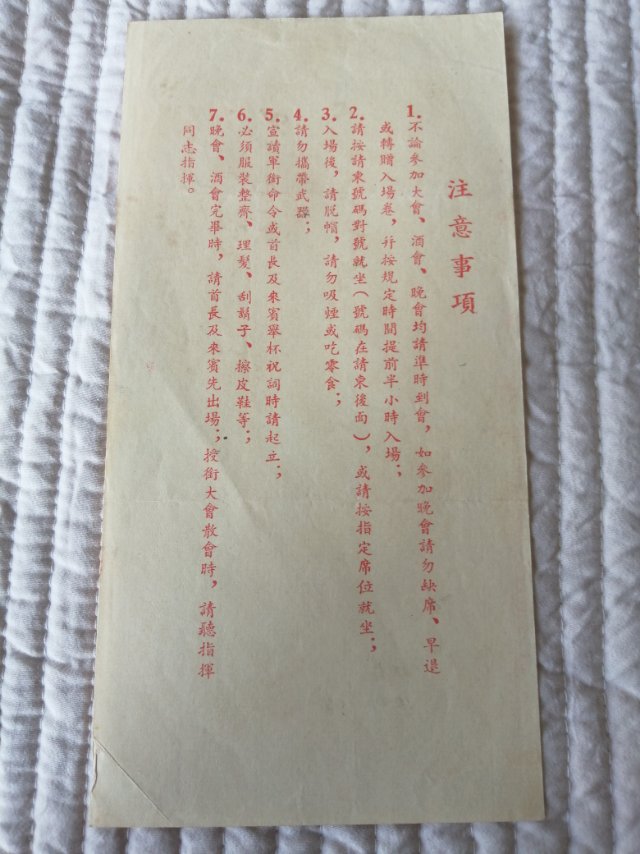 注意事項
1.不論參加大會、酒會、晚會均請準時到會，如參加晚會請勿缺席、早退
或轉贈入場卷，幷按規定時間提前半小時入場；
2.請按請柬號碼對號就坐（號碼在請柬後面），或請按指定席位就坐；
3.入場後，請脫帽，請勿吸煙或吃零食；
4.請勿攜帶武器；
5.宣讀軍銜命令或首長及來賓舉杯祝詞時請起立；
6.必須服裝整齊、理髮、刮鬍子、擦皮鞋等；
7.晚會、酒會完畢時，請首長及來賓先出場；授銜大會散會時，請聽指揮
同志指揮。